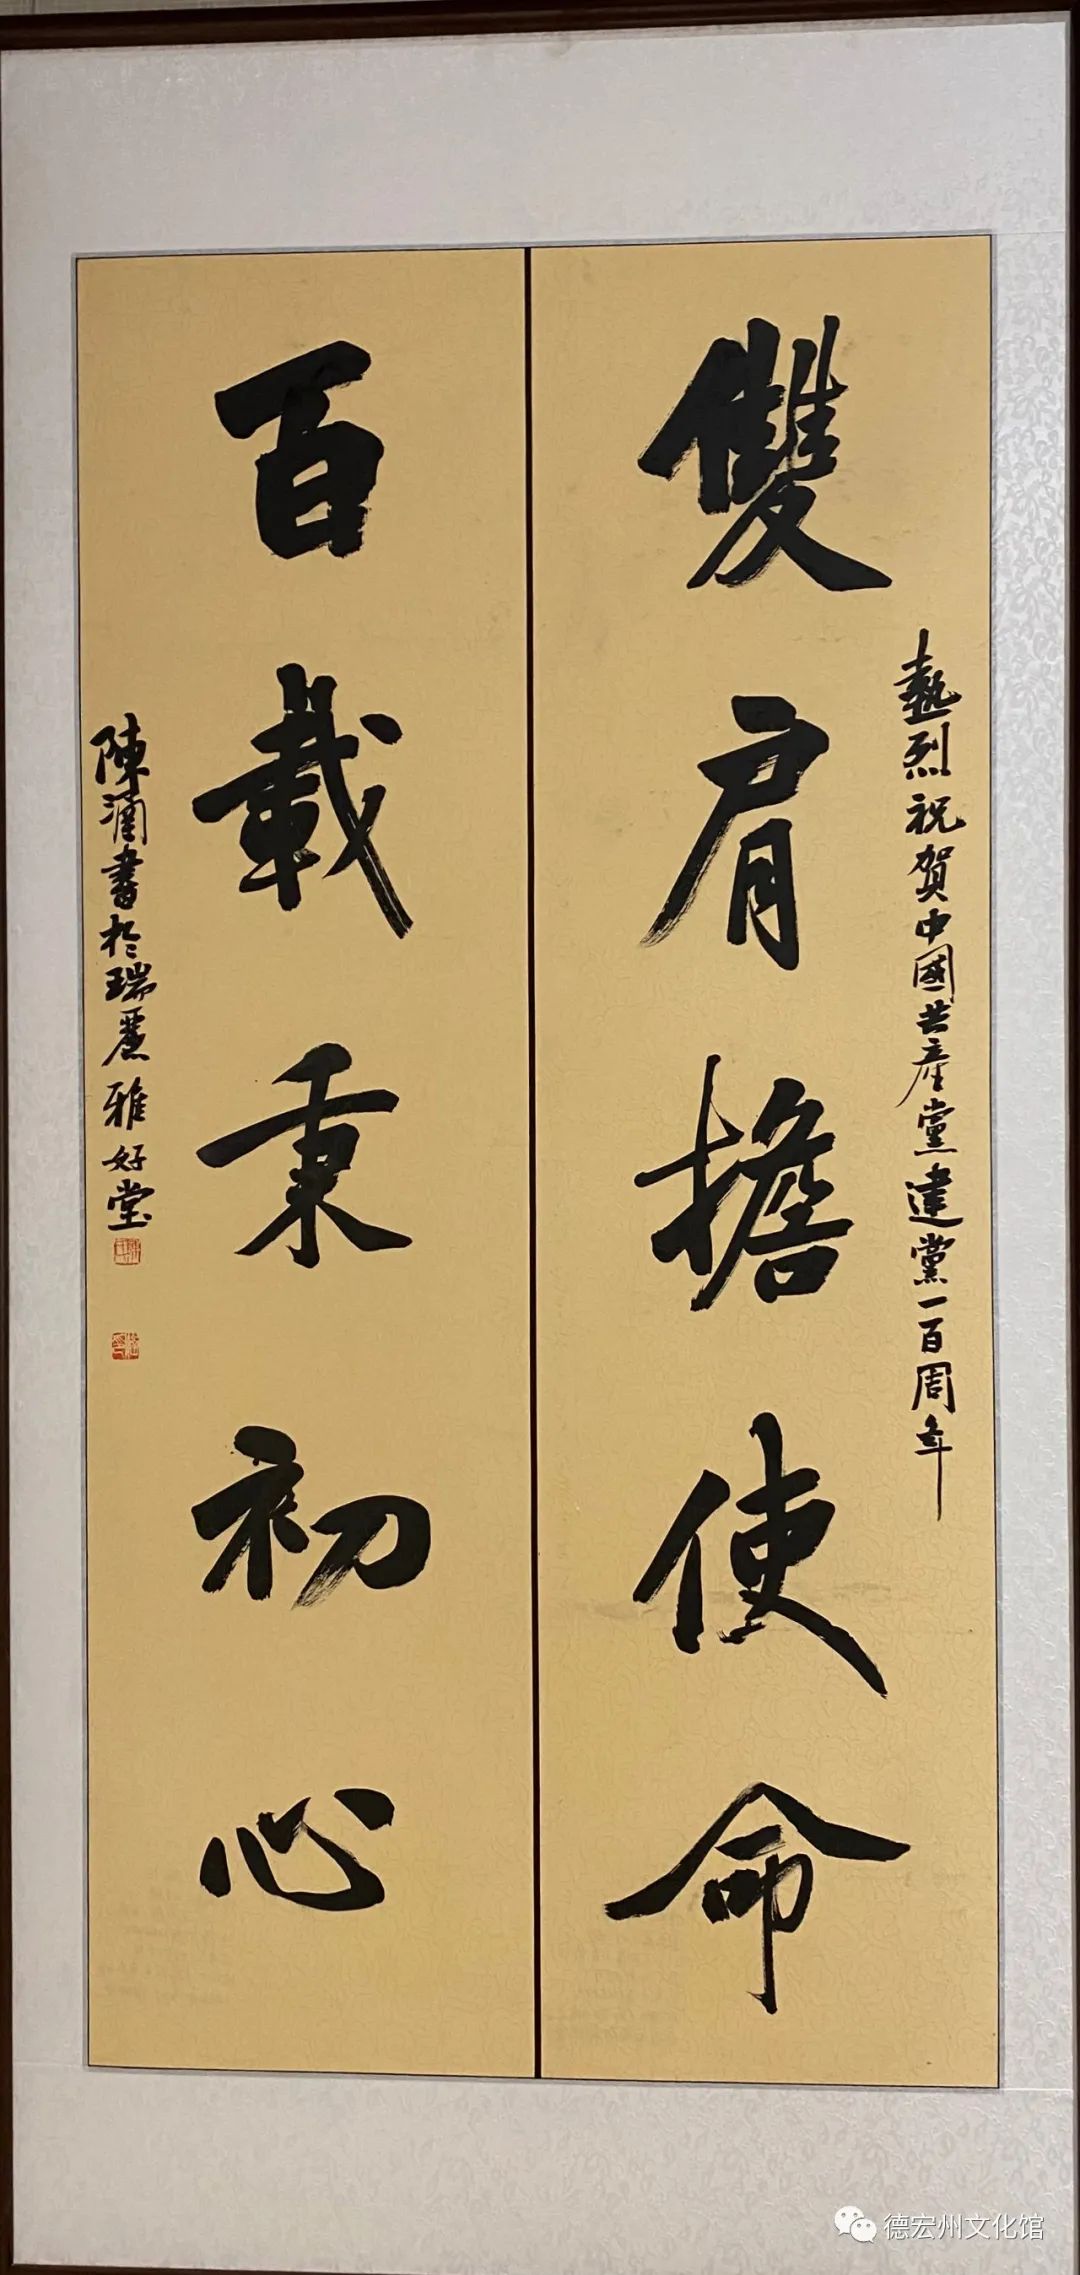 熱烈祝賀中國共產黨建黨一百周年
雙肩擔使命
百載秉初心
陳滴書於瑞麗雅好堂
德宏州文化馆